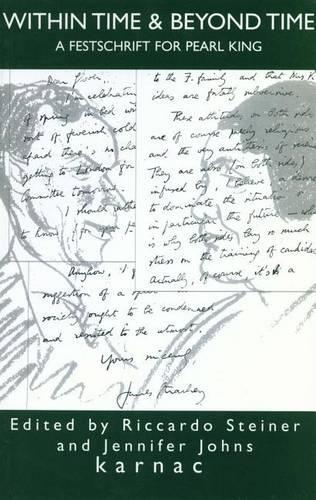 WITHIN TIME & BEYOND TIME
A FESTSCHRIFT FOR PEARL KING
Dear Glover,
I'm celebrating
of spring in bed
sort of feverish cold
afraid there's no cha
getting to London for
Committee tomorrow.
I should rather
to know
Anyhow, I f
suggestion of a
society ought to be condemned
and resisted to the utmost.
Yours sincerely,
James Strachey
to the F. family and that Mrs K
ideas are fatally subversive.
These attitudes on both sides
are of course purely religious
and the very antithesis of
They are also (on both sides)
infused by, I believe, a desire
to dominate the situation
in particular the future
is why both sides lay so much
stress on the training of candida
Actually, of course, it's a
Edited by Riccardo Steiner
and Jennifer Johns
karnac